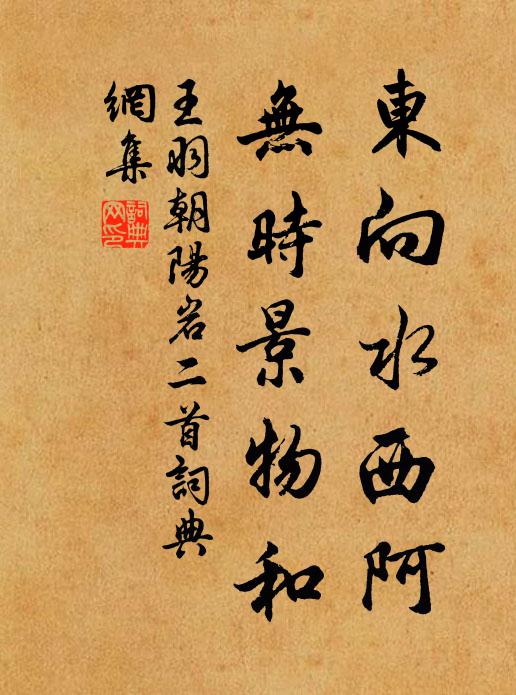 東向水西阿
無時景物和
王羽朝陽岩二首詞典
網集
詞典
网印